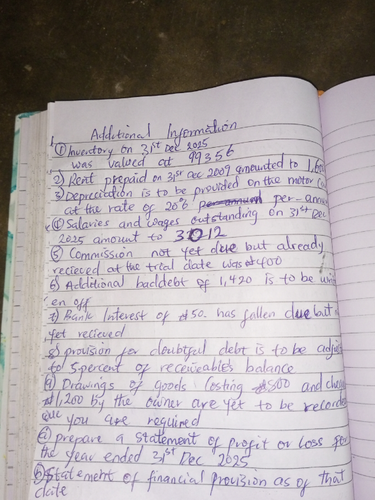 Additional Information
① Inventory on 31st Dec 2025
was valued at 99356
2) Rent prepaid on 31st Dec 2009 amounted to 1,600
3) Depreciation is to be provided on the motor
at the rate of 20% per-annum
④ Salaries and wages outstanding on 31st Dec
2025 amount to 32012
⑤ Commission not yet due but already
recieved at the trial date was 400
6) Additional baddebt of 1,420 is to be
en off
7) Bank Interest of 50. has fallen due but
yet recieved
8) provision for doubtful debt is to be
to 5 percent of receivable's balance
9) Drawings of goods costing 500 and
1,200 by the owner are yet to be recorded
you are required
a) prepare a statement of profit or loss for
the year ended 31st Dec 2025
b) Statement of financial provision as of that
date